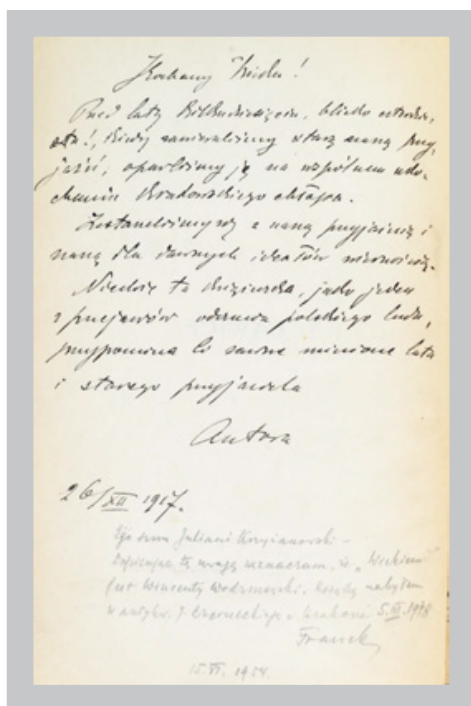 Kochany Wicku!
Przed laty kilkudziesięciu, blisko
kiedy zawieraliśmy starą naszą przy-
jaźń, oparliśmy ją na wspólnem uko-
chaniu krakowskiego chłopa.
Zestarzeliśmy się z naszą przyjaźnią i
naszą dla dawnych ideałów wiernością.
Niechże ta książeczka, jako jeden
z przejawów odczucia polskiego ludu,
przypomina Ci zawsze minione lata
i starego przyjaciela
Autora
26/XII 1917.
Juliani Krzyżanowski –
tę uwagę zaznaczam, iż „Wickiem"
jest Wincenty Wodzinowski. Książkę nabyłem
w antykw. w Krakowie 5.III.1918
Franek
15.VI.1954.